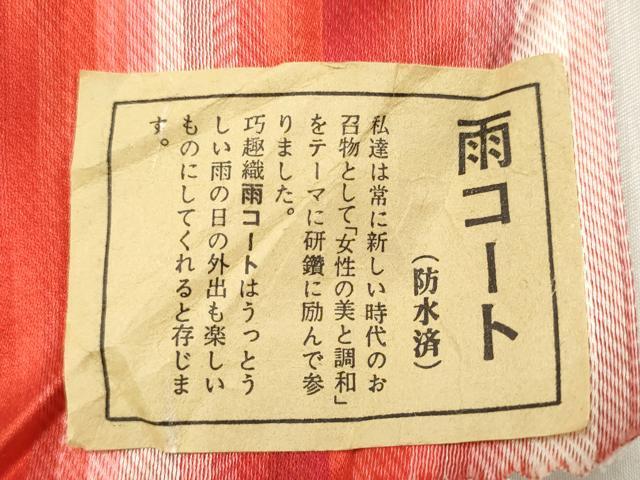 雨コート
(防水済)
私達は常に新しい時代のお
召物として「女性の美と調和」
をテーマに研鑽に励んで参
りました。
巧趣織雨コートはうっとう
しい雨の日の外出も楽しい
ものにしてくれると存じま
す。